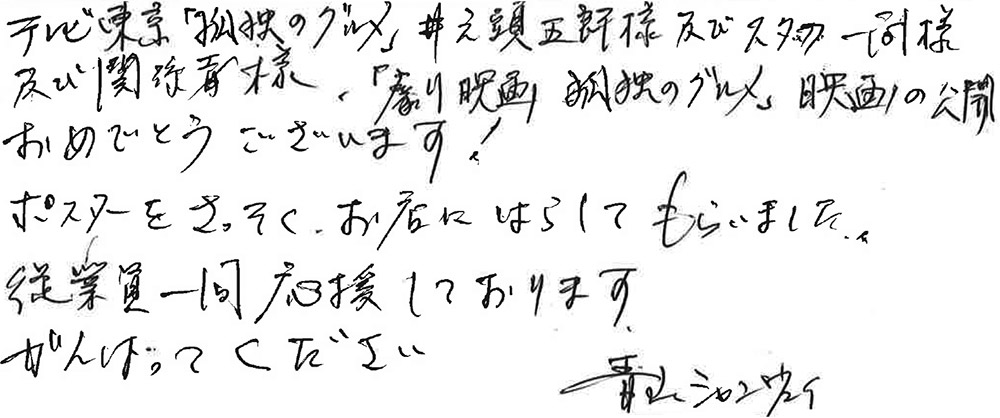 テレビ東京「孤独のグルメ」井之頭五郎様及びスタッフ一同様
及び関係者様、「劇映画 孤独のグルメ」映画の公開
おめでとうございます!
ポスターをさっそく、お店にはらしてもらいました。
従業員一同応援しております
がんばってください
青山シャンウェイ